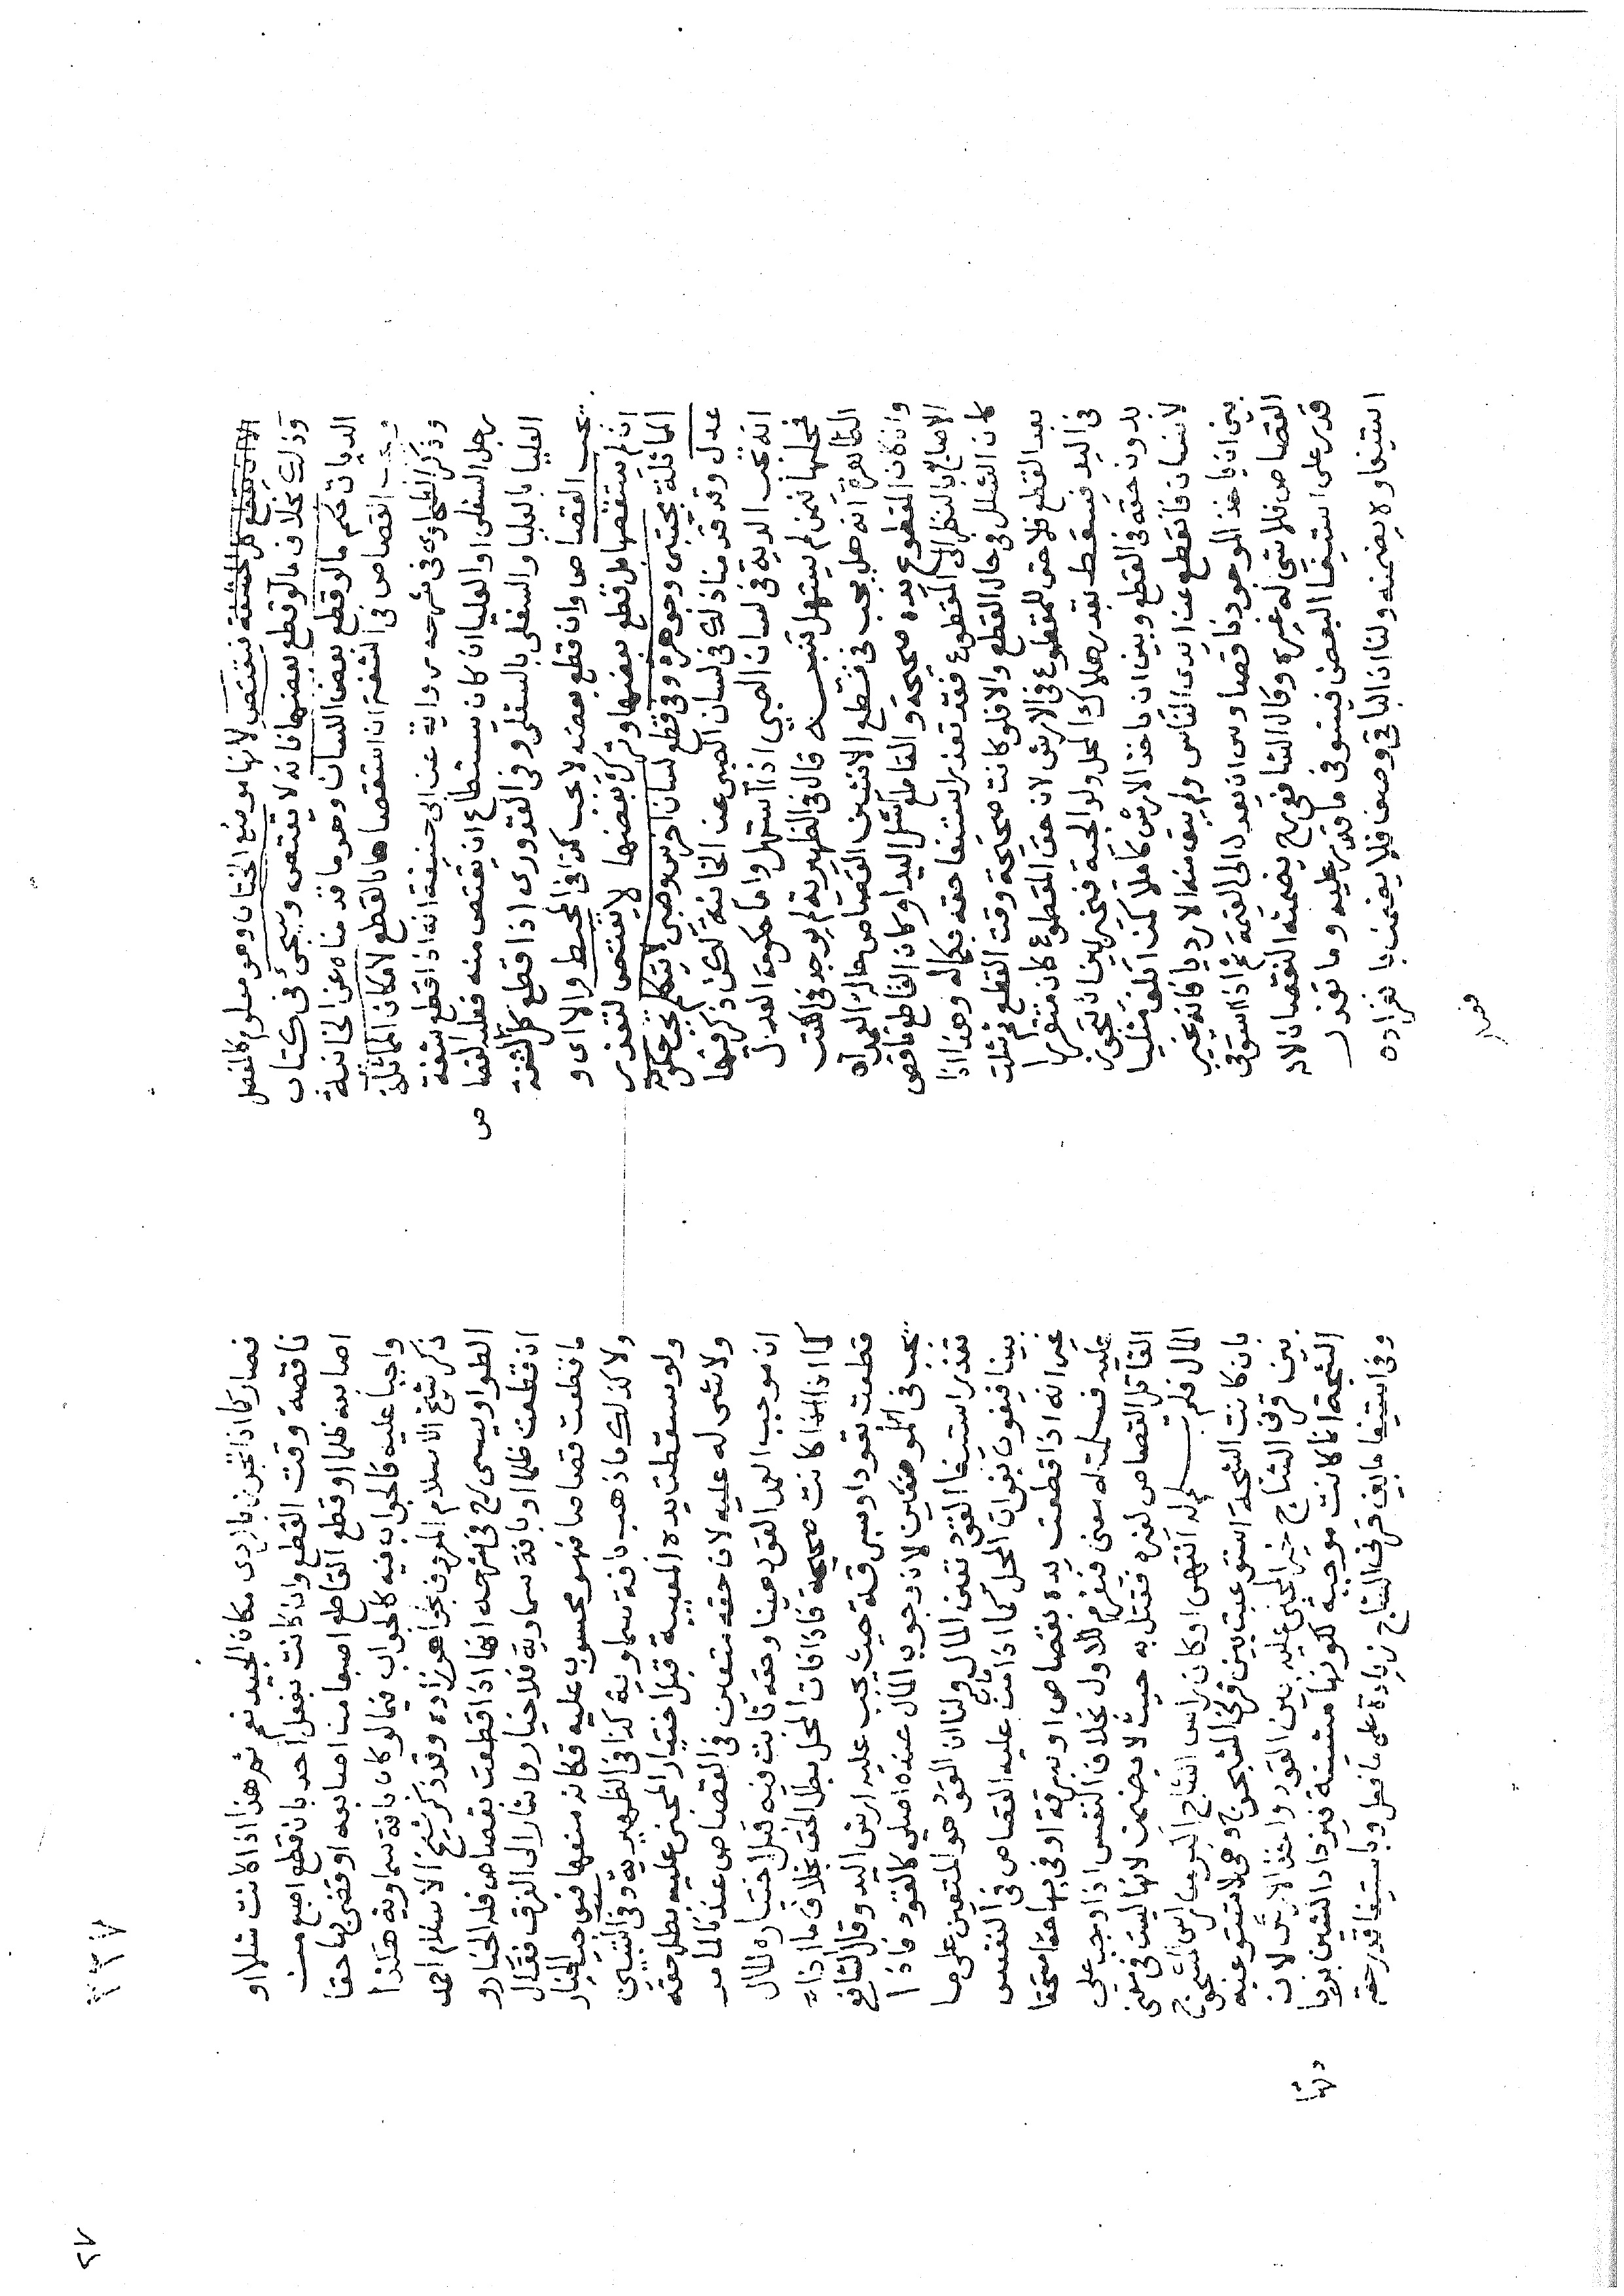 الا ان تقطع كل الحشفة فيقتص لانها موضع الختان وهو معلوم كالمفصل
وذلك بخلاف ما لو قطع بعضها فانه لا يقتص وسيجئ فى كتاب
الديات حكم ما لو قطع بعض اللسان وهو ما قدمناه عن الخانية
القصاص فى الشفة ان استقصاها بالقطع لامكان المماثلة
وذكر الطحاوى فى شرحه رواية عن ابى حنيفة انه اذا قطع شفة
رجل السفلى او العليا ان كان يستطاع ان يقتص منه فعليه القصاص
العليا بالعليا والسفلى بالسفلى وفى القدورى اذا قطع كل الشفة
يجب القصاص وان قطع بعضه لا يجب كذا فى المحيط والا اى و
ان لم يستقصها بل قطع بعضها وترك بعضها لا يقتص لتعذر
المماثلة مجتبى وجوهره وفى قطع لسان اخرس وصبى لا يتكلم يجب حكومة
عدل وقد قدمنا ذلك فى لسان الصبى عن الخانية لكن ذكر فيها
انه تجب الدية فى لسان الصبي اذا استهل واما حكومة العدل
فمحلها فيمن لم يستهل تنبيه قال فى الظهيرية لم يوجد فى الكتب
الظاهرة انه هل يجب فى قطع الانثيين القصاص حالة العمد اه
وان كان المقطوع يده صحيحة والقاطع اشل اليد او كان القاطع ناقص
الاصابع بالنظر الى المقطوع فقد تعذر استيفا حقه بكماله وهذا اذا
كان الشلل فى حال القطع والا فلو كانت صحيحة وقت القطع ثم شلت
بعد القطع فلا حق للمقطوع فى الارش لان حق المقطوع كان متقررا
فى اليد فيسقط بقدر هلاك المحل ولوالجية فيخير بين ان يتجوز
بدون حقه فى القطع وبين ان ياخذ الارش كاملا كمن اتلف مثليا
لانسان فانقطع عن ايدى الناس ولم يبق منه الا رديا فانه يخير
بين ان ياخذ الموجود ناقصا وبين ان يعدل الى القيمة ثم اذا استوفى
القصاص فلا شى له غيره وقال الشافعى رح يضمنه النقصان لانه
قدر على استيفا البعض فيستوفى ما قدر عليه وما تعذر
استيفاوه يضمنه ولنا ان الباقى وصف فلا يضمن بانفراده
فصار
فصار كما اذا تجوز بالردى مكان الجيد نعم ثم هذا اذا كانت شلا او
ناقصة وقت القطع وان كانت بفعل احد بان قطع اصبع من
اصابعه ظلما او قطع القاطع اصبعا من اصابعه او قضى بها حقا
واجبا عليه فالجواب فيه كالجواب فيما لو كان بافة سماوية هكذا
ذكر شيخ الاسلام المعروف بخواهرزاده وقد ذكر شيخ الاسلام احمد
الطواويسى رح فى شرحه انها اذا قطعت بقصاص فله الخيار و
ان قطعت ظلما او بافة سماوية فلا خيار واشار الى الفرق فقال
ما قطعت قصاصا فهو محسوب عليه فكانه منعها فيوجب الخيار
ولا كذلك ما ذهب بافة سماوية كذا فى الظهيرية وفى التبيين
ولو سقطت يده المعيبة قبل اختيار المجنى عليه بطل حقه
ولا شى له عليه لان حقه متعين فى القصاص عندنا لما مر
ان موجب العمد القود عينا وحقه ثابت فيه قبل اختياره المال
كما اذا كانت صحيحة فاذا فات المحل بطل الحق بخلاف ما اذا
قطعت بقود او سرقة حيث يجب عليه ارش اليد وقال الشافعى
يجب فى الموضعين لان وجوب المال عنده اصلي كالقود فاذا
تعذر استيفا القود تعين المال ولنا ان القود هو المتعين على ما
بينا فيفوت بفوات المحل كما اذا مات من عليه القصاص فى النفس
غير انه اذا قطعت يده بقصاص او سرقة اوفى بها حقا مستحقا
عليه فسلمت له معنى فيغرم للاول بخلاف النفس اذا وجب على
القاتل القصاص لغيره فقتل به حيث لا يضمن لانها ليست فى معنى
المال فلم تسلم له انتهى او كان راس الشاج اكبر من راس المشجوج
بان كانت الشجة استوعبت بين قرنى المشجوج وهى لا تستوعبه
بين قرنى الشاج خير المجنى عليه بين القود واخذ الارش لان
الشجة انما كانت موجبة لكونها مشينة فيزداد الشين بزيادتها
وفى استيفا ما بين قرنى الشاج زيادة على ما فعل وباستيفا قدر حقه